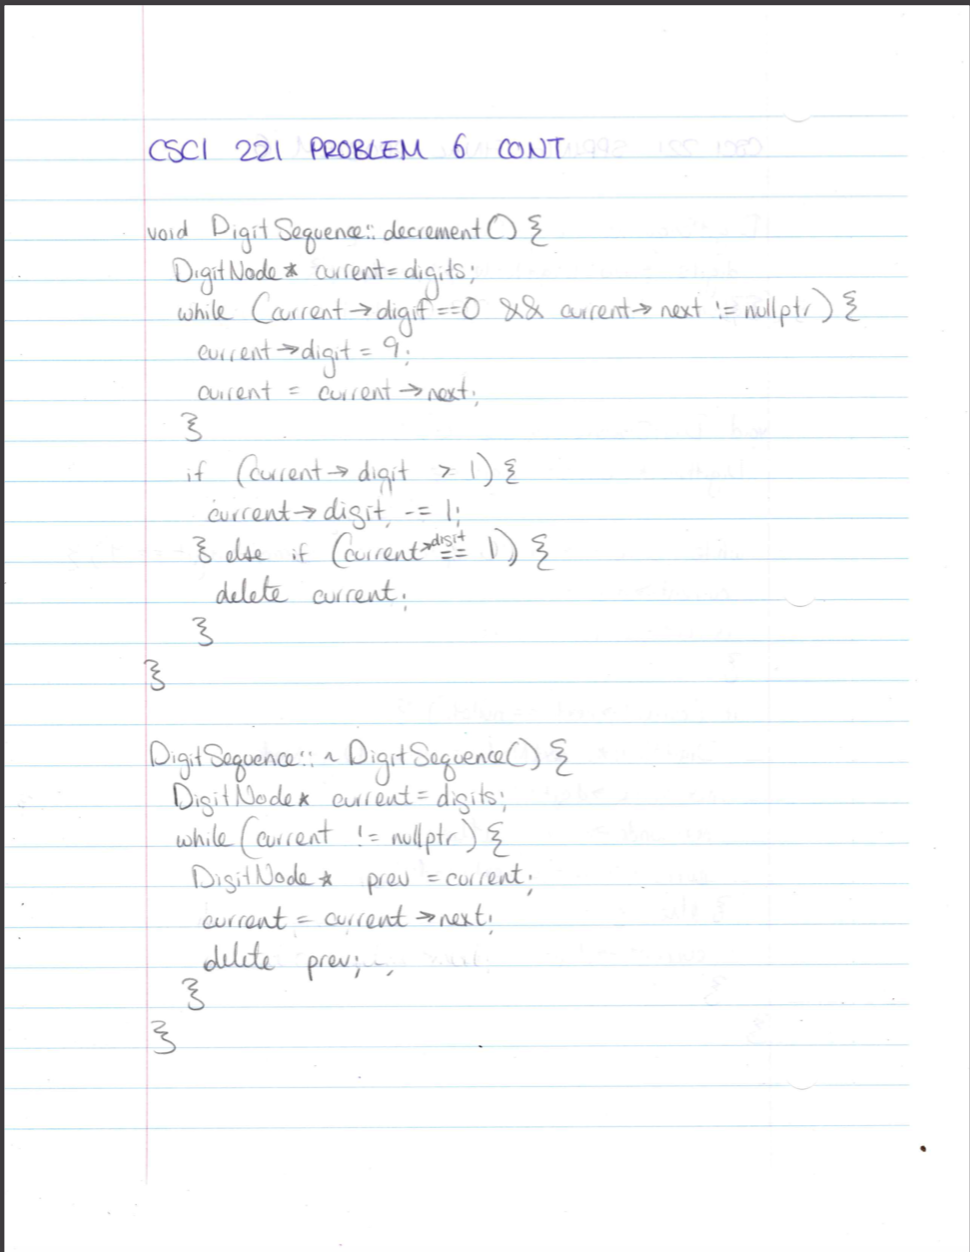 CSCI 221 PROBLEM 6 CONT
void DigitSequence::decrement() {
DigitNode* current = digits;
while (current->digit == 0 && current->next != nullptr) {
current->digit = 9;
current = current->next;
}
if (current->digit > 1) {
current->digit -= 1;
} else if (current->digit == 1) {
delete current;
}
}
DigitSequence::~DigitSequence() {
DigitNode* current = digits;
while (current != nullptr) {
DigitNode* prev = current;
current = current->next;
delete prev;
}
}